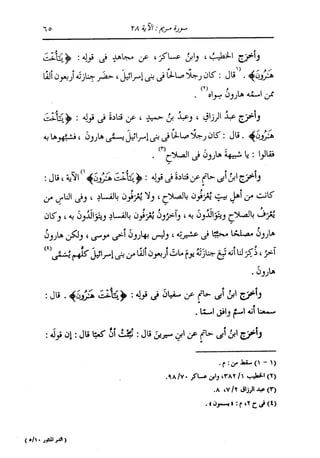 سورة مريم : الآية ٢٨
٦٥
وأخرج الخطيبُ ، وابنُ عساكرَ ، عن مجاهدٍ فى قولِه : ﴿يَٰٓأُخْتَ
هَٰرُونَ﴾ . قال(١) : كان رجلًا صالحًا فى بنى إسرائيلَ ، حضَر جنازتَه أربعون ألفًا
ممن اسمُه هارونُ سِواه(٢) .
وأخرَج عبدُ الرزاقِ ، وعبدُ بنُ حميدٍ ، عن قتادةَ فى قولِه : ﴿يَٰٓأُخْتَ
هَٰرُونَ﴾ . قال : كان رجلًا صالحًا فى بنى إسرائيلَ يسمَّى هارونَ ، فشبَّهوها به
فقالوا : يا شبيهةَ هارونَ فى الصلاحِ(٣) .
وأخرَج ابنُ أبى حاتمٍ عن قتادةَ فى قولِه : ﴿يَٰٓأُخْتَ هَٰرُونَ﴾(١) الآية ، قال :
كانت من أهلِ بيتٍ يُعْرَفون بالصلاحِ ، ولا يُعْرَفون بالفسادِ ، وفى الناسِ من
يُعْرَفُ بالصلاحِ ويتوالَدُون به ، وآخرون يُعْرَفون بالفسادِ ويتوالَدُون به ، وكان
هارونُ مصلحًا محبَّبًا فى عشيرتِه ، وليس بهارونَ أخى موسى ، ولكن هارونُ
آخرُ ، ذُكِرَ لنا أنه تَبِع جنازتَه يومَ مات أربعون ألفًا من بنى إسرائيلَ كلُّهم يُسَمَّى(٤)
هارونَ .
وأخرَج ابنُ أبى حاتمٍ عن سفيانَ فى قولِه : ﴿يَٰٓأُخْتَ هَٰرُونَ﴾ . قال :
سمِعنا أنه اسمٌ وافَق اسمًا .
وأخرَج ابنُ أبى حاتمٍ عن ابنِ سيرينَ قال : نُبِّئْتُ أنَّ كعبًا قال : إن قولَه :
(١ - ١) سقط من : م .
(٢) الخطيب ١/ ٣٨٢، وابن عساكر ٩٨/٧٠ .
(٣) عبد الرزاق ٧/٢، ٨ .
(٤) فى ح ٢، م : « يسمون » .
( الدر المنثور ٥/١٠ )